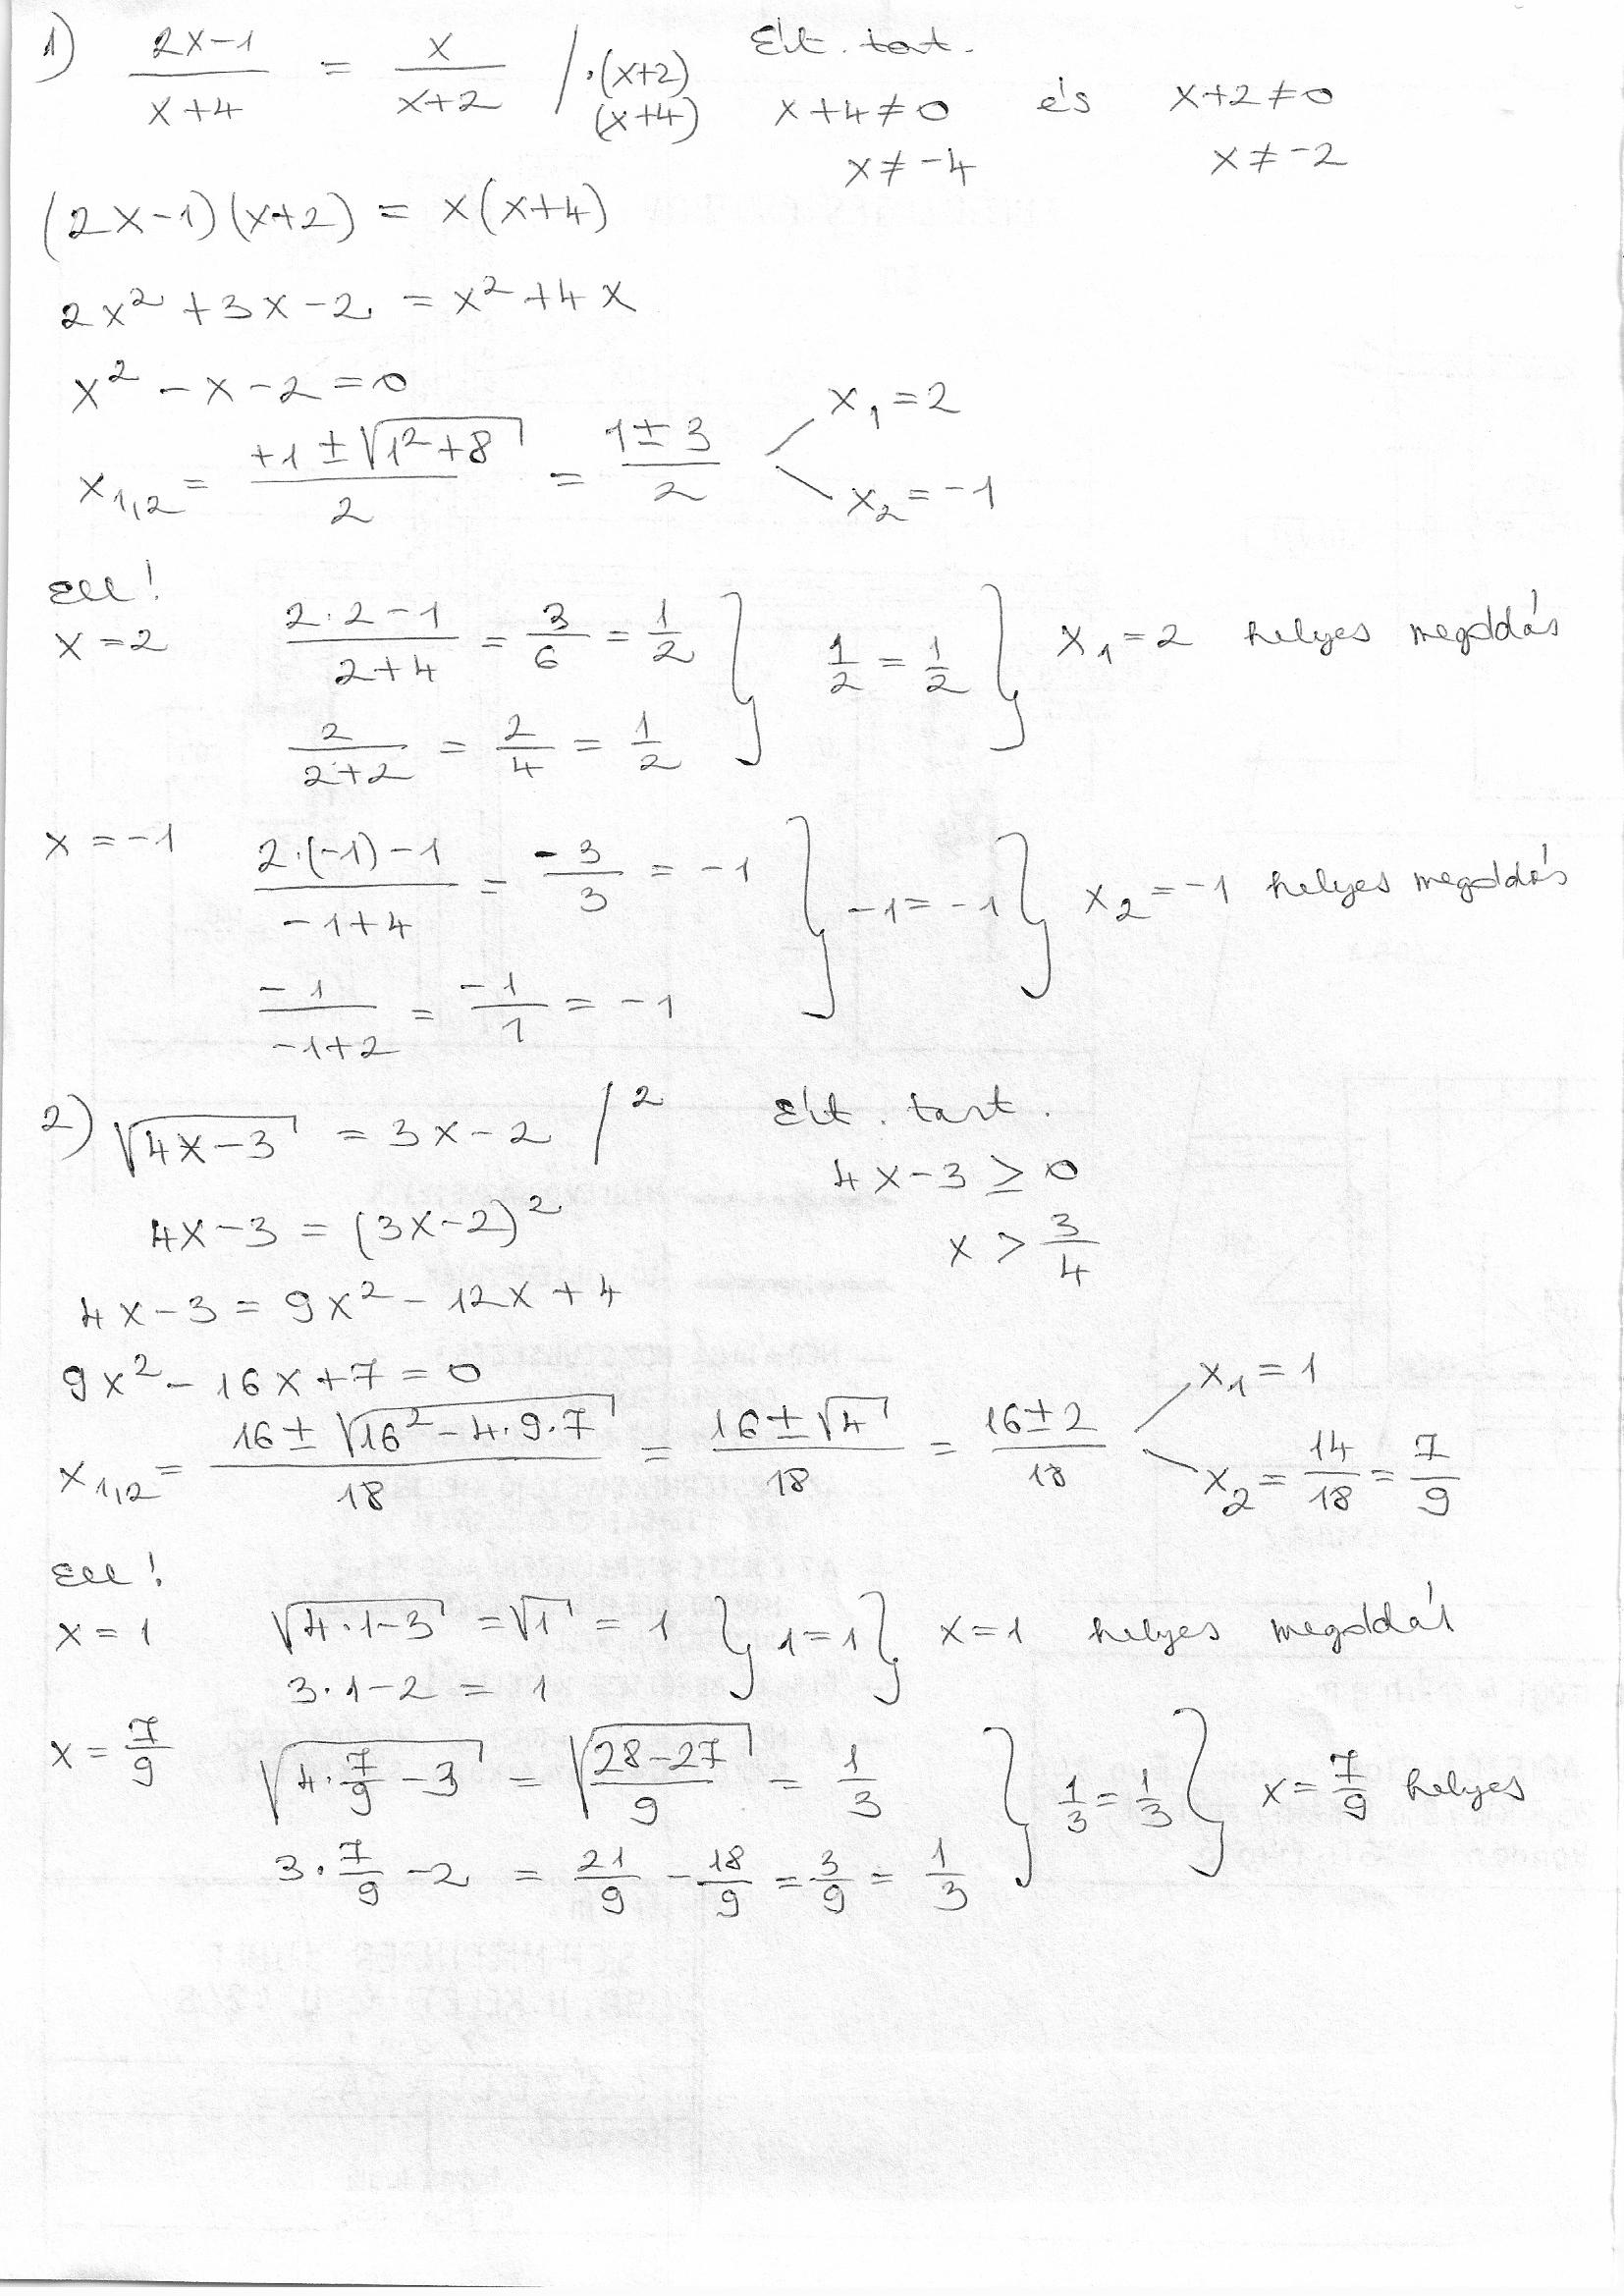 1) (2x-1)/(x+4) = x/(x+2) /·(x+2)(x+4) Ért. tart.
x+4≠0 és x+2≠0
x≠-4 x≠-2
(2x-1)(x+2) = x(x+4)
2x²+3x-2 = x²+4x
x²-x-2=0
x₁,₂ = (+1±√(1²+8))/2 = (1±3)/2 x₁=2
x₂=-1
Ell!
x=2 (2·2-1)/(2+4) = 3/6 = 1/2 } 1/2 = 1/2 } x₁=2 helyes megoldás
2/(2+2) = 2/4 = 1/2
x=-1 (2·(-1)-1)/(-1+4) = -3/3 = -1 } -1=-1 } x₂=-1 helyes megoldás
-1/(-1+2) = -1/1 = -1
2) √(4x-3) = 3x-2 /² Ért. tart.
4x-3≥0
4x-3 = (3x-2)² x > 3/4
4x-3 = 9x²-12x+4
9x²-16x+7=0
x₁,₂ = (16±√(16²-4·9·7))/18 = (16±√4)/18 = (16±2)/18 x₁=1
x₂ = 14/18 = 7/9
Ell!
x=1 √(4·1-3) = √1 = 1 } 1=1 } x=1 helyes megoldás
3·1-2 = 1
x = 7/9 √(4·7/9-3) = √((28-27)/9) = 1/3 } 1/3 = 1/3 } x = 7/9 helyes
3·7/9-2 = 21/9 - 18/9 = 3/9 = 1/3